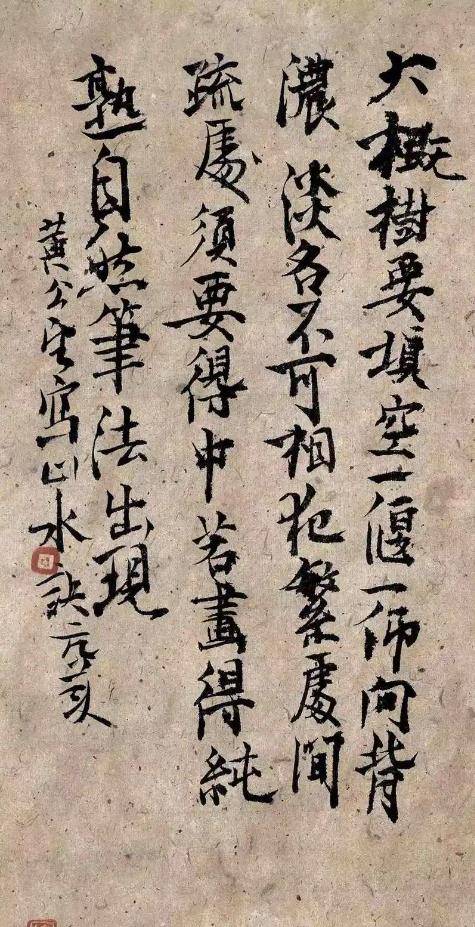 大概樹要填空一偃一仰向背
濃淡各不可相犯繁處間
疏處須要得中若畫得純
熟自然筆法出現
黃公望寫山水訣